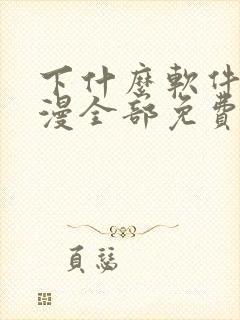 下什麼軟件
漫全部免費